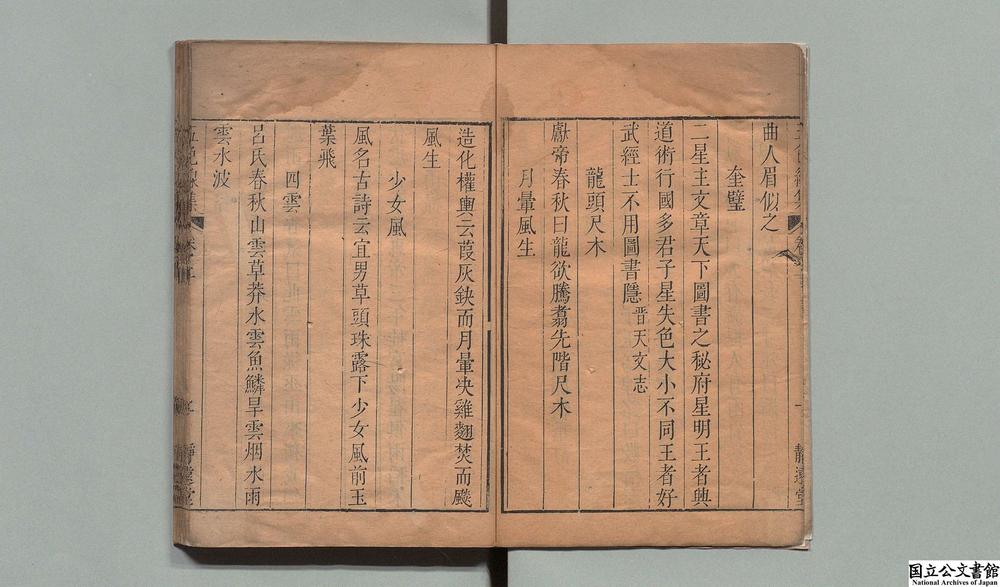 曲人眉似之
奎壁
二星主文章天下圖書之秘府星明王者興
道術行國多君子星失色大小不同王者好
武經士不用圖書隱晋天文志
龍頭尺木
獻帝春秋曰龍欲騰翥先階尺木
月暈風生
造化權輿云葭灰鈌而月暈决雞翅焚而颷
風生
少女風
風名古詩云宜男草頭珠露下少女風前玉
葉飛
四雲
呂氏春秋山雲草莽水雲魚鱗旱雲烟水雨
雲水波
静遠堂
国立公文書館
National Archives of Japan